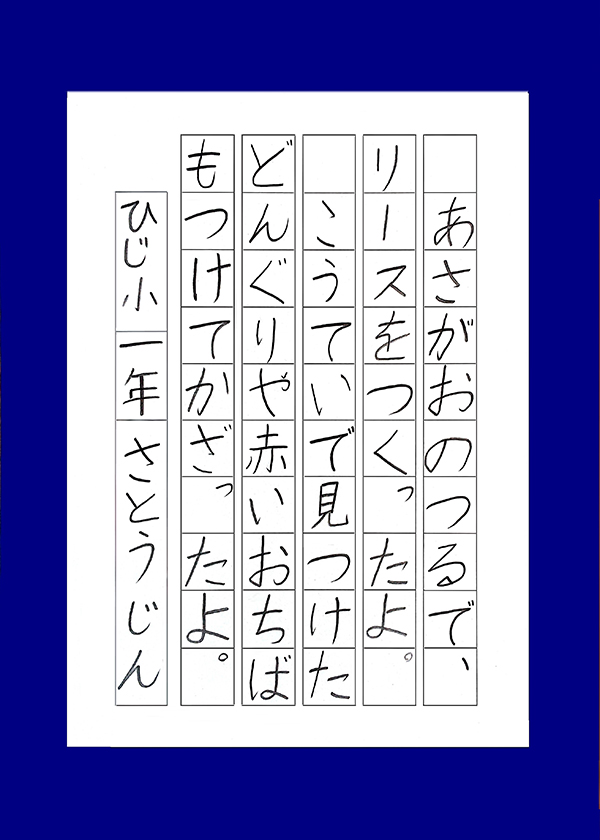 あさがおのつるで、
リースをつくったよ。
　こうていで見つけた
どんぐりや赤いおちば
もつけてかざったよ。
ひじ小 一年 さとうじん